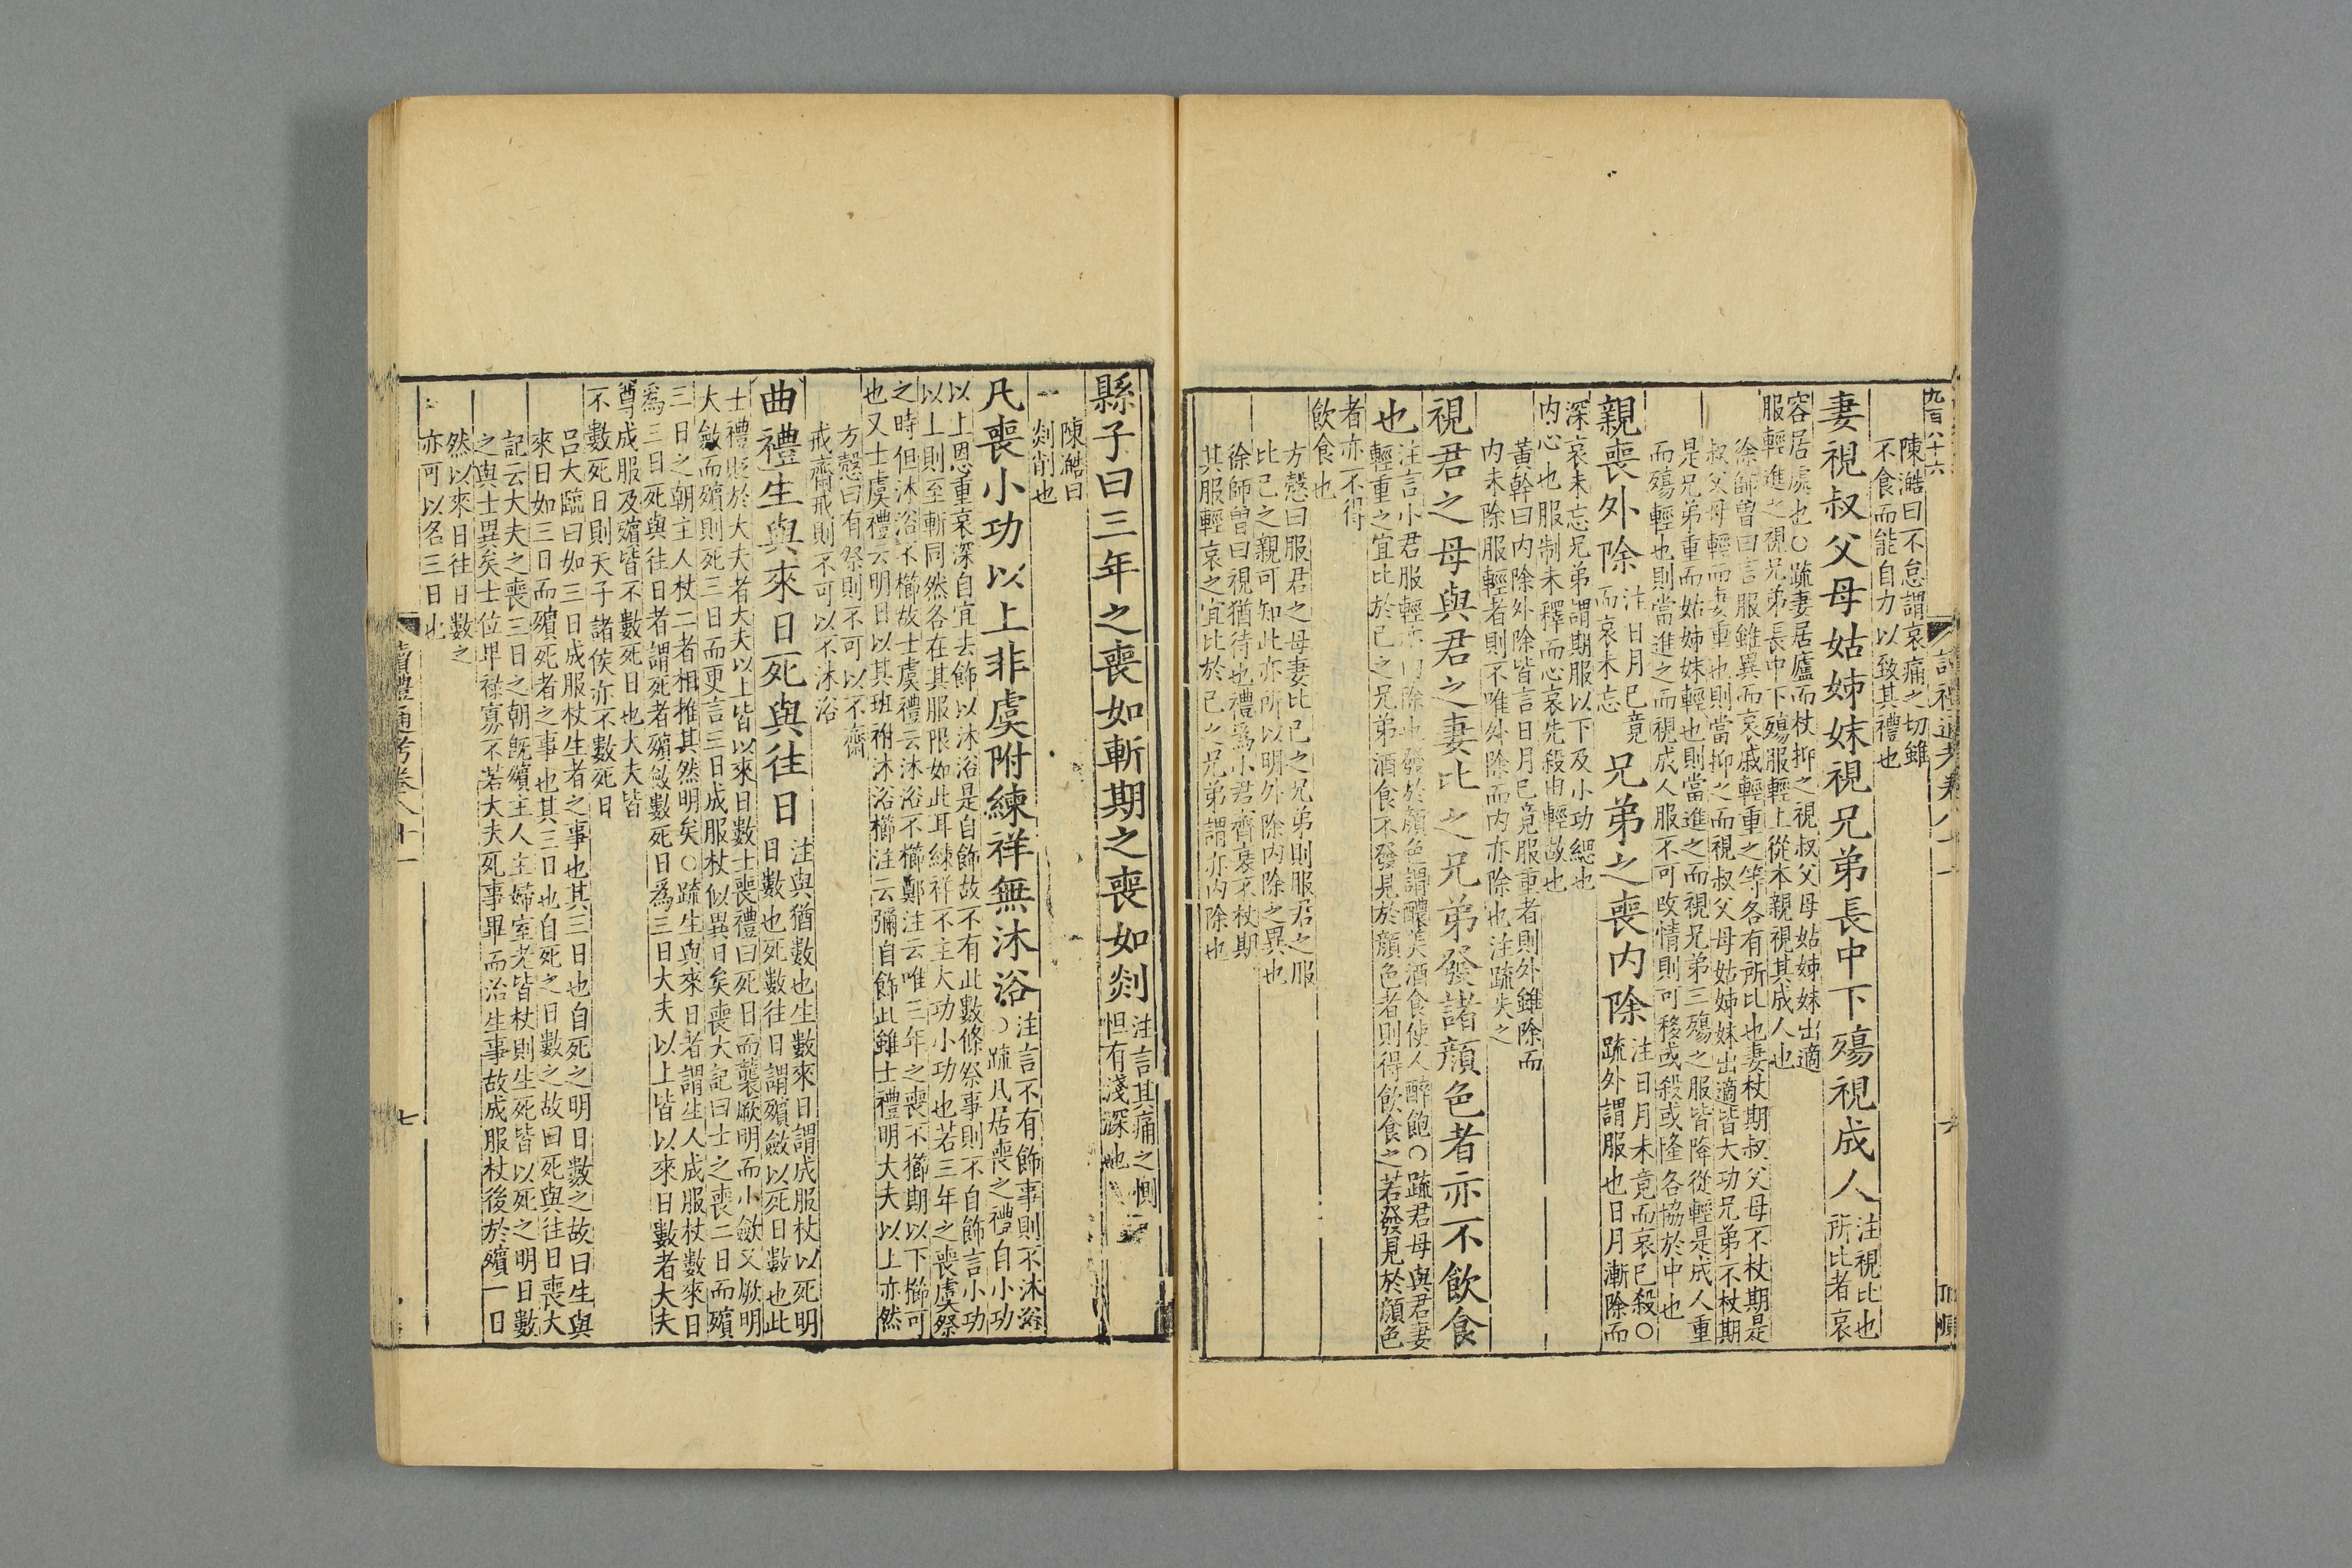 九百八十六
陳澔曰不怠謂哀痛之切雖
不食而能自力以致其禮也
妻視叔父母姑姊妹視兄弟長中下殤視成人
注視比也
所比者哀
容居處也○疏妻居廬而杖抑之視叔父母姑姊妹出適
服輕進之視兄弟長中下殤服輕上從本親視其成人也
徐師曾曰言服雖異而哀戚輕重之等各有所比也妻杖期叔父母不杖期是
叔父母輕而妻重也則當抑之而視叔父母姑姊妹出適皆大功兄弟不杖期
是兄弟重而姑姊妹輕也則當進之而視兄弟三殤之服皆降從輕是成人重
而殤輕也則當進之而視成人服不可改情則可移或殺或隆各協於中也
親喪外除
注日月已竟
而哀未忘
兄弟之喪內除
注日月未竟而哀已殺○
疏外謂服也日月漸除而
深哀未忘兄弟謂期服以下及小功緦也
內心也服制未釋而心哀先殺由輕故也
黃幹曰內除外除皆言日月已竟服重者則外雖除而
內未除服輕者則不唯外除而內亦除也注疏失之
視君之母與君之妻比之兄弟發諸顏色者亦不飲食
也
注言小君服輕亦內除也發於顏色謂醲美酒食使人醉飽○疏君母與君妻
輕重之宜比於己之兄弟酒食不發見於顏色者則得飲食之若發見於顏色
者亦不得
飲食也
方慤曰服君之母妻比己之兄弟則服君之服
比己之親可知此亦所以明外除內除之異也
徐師曾曰視猶待也禮爲小君齊衰不杖期
其服輕哀之宜比於己之兄弟謂亦內除也
縣子曰三年之喪如斬期之喪如剡
注言其痛之惻
怛有淺深也
陳澔曰
剡削也
凡喪小功以上非虞附練祥無沐浴
注言不有飾事則不沐浴
○疏凡居喪之禮自小功
以上恩重哀深自宜去飾以沐浴是自飾故不有此數條祭事則不自飾言小功
以上則至斬同然各在其服限如此耳練祥不主大功小功也若三年之喪虞祭
之時但沐浴不櫛故士虞禮云沐浴不櫛鄭注云唯三年之喪不櫛期以下櫛可
也又士虞禮云明日以其班祔沐浴櫛注云彌自飾此雖士禮明大夫以上亦然
方慤曰有祭則不可以不齋
戒齋戒則不可以不沐浴
曲禮生與來日死與往日
注與猶數也生數來日謂成服杖以死明
日數也死數往日謂殯斂以死日數也此
士禮貶於大夫者大夫以上皆以來日數士喪禮曰死日而襲厥明而小斂又厥明
大斂而殯則死三日而更言三日成服杖似異日矣喪大記曰士之喪二日而殯
三日之朝主人杖二者相推其然明矣○疏生與來日者謂生人成服杖數來日
爲三日死與往日者謂死者殯斂數死日爲三日大夫以上皆以來日數者大夫
尊成服及殯皆不數死日也大夫皆
不數死日則天子諸侯亦不數死日
呂大臨曰如三日成服杖生者之事也其三日也自死之明日數之故曰生與
來日如三日而殯死者之事也其三日也自死之日數之故曰死與往日喪大
記云大夫之喪三日之朝旣殯主人主婦室老皆杖則生死皆以死之明日數
之與士異矣士位卑祿寡不若大夫死事畢而治生事故成服杖後於殯一日
然以來日往日數之
亦可以名三日也
讀禮通考卷八十一
七